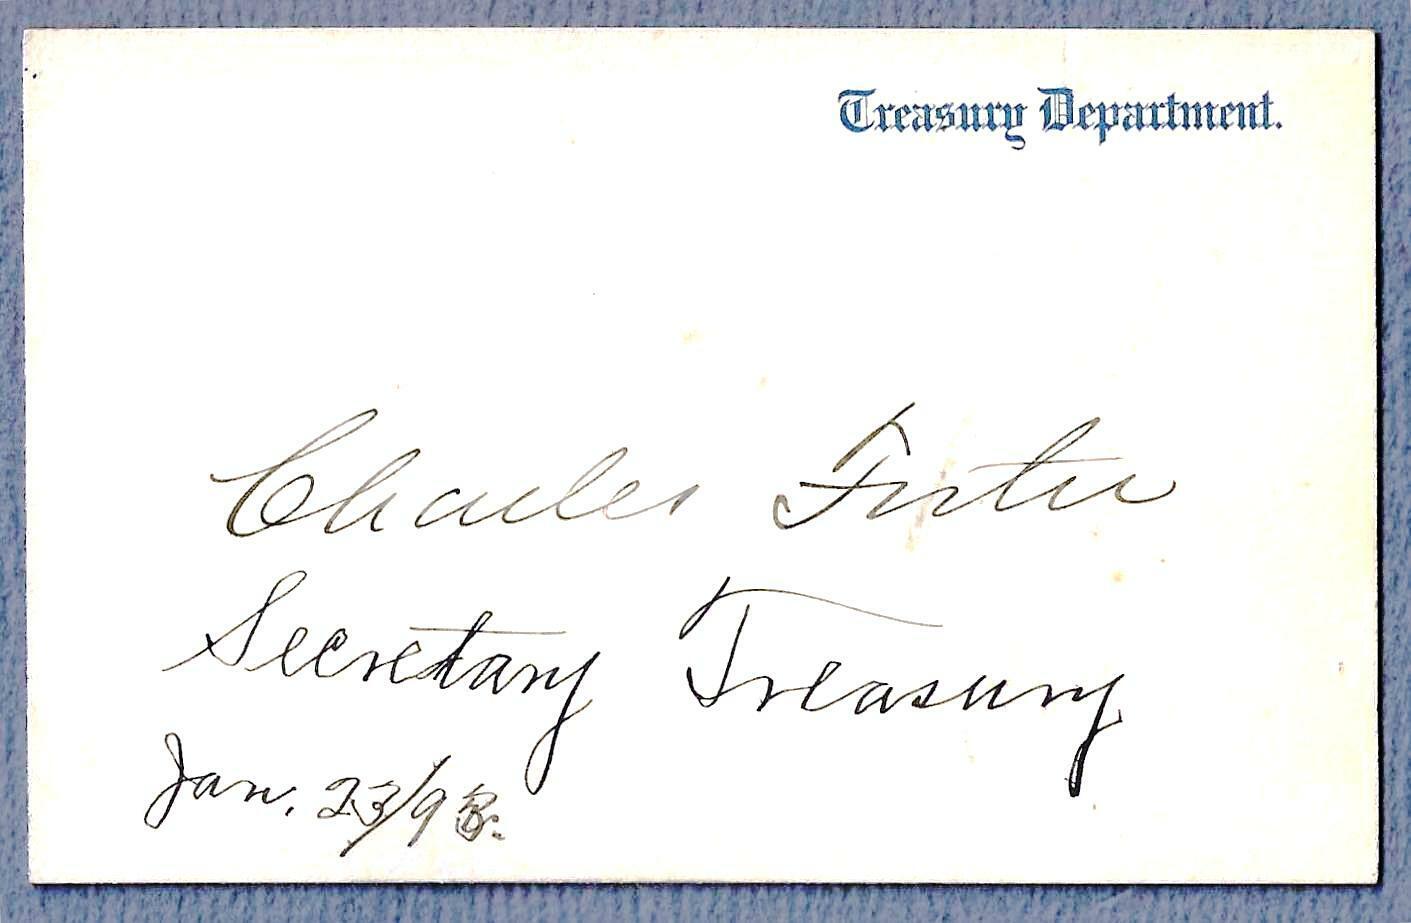 Treasury Department.
Charles Foster
Secretary Treasury
Jan. 23/93.